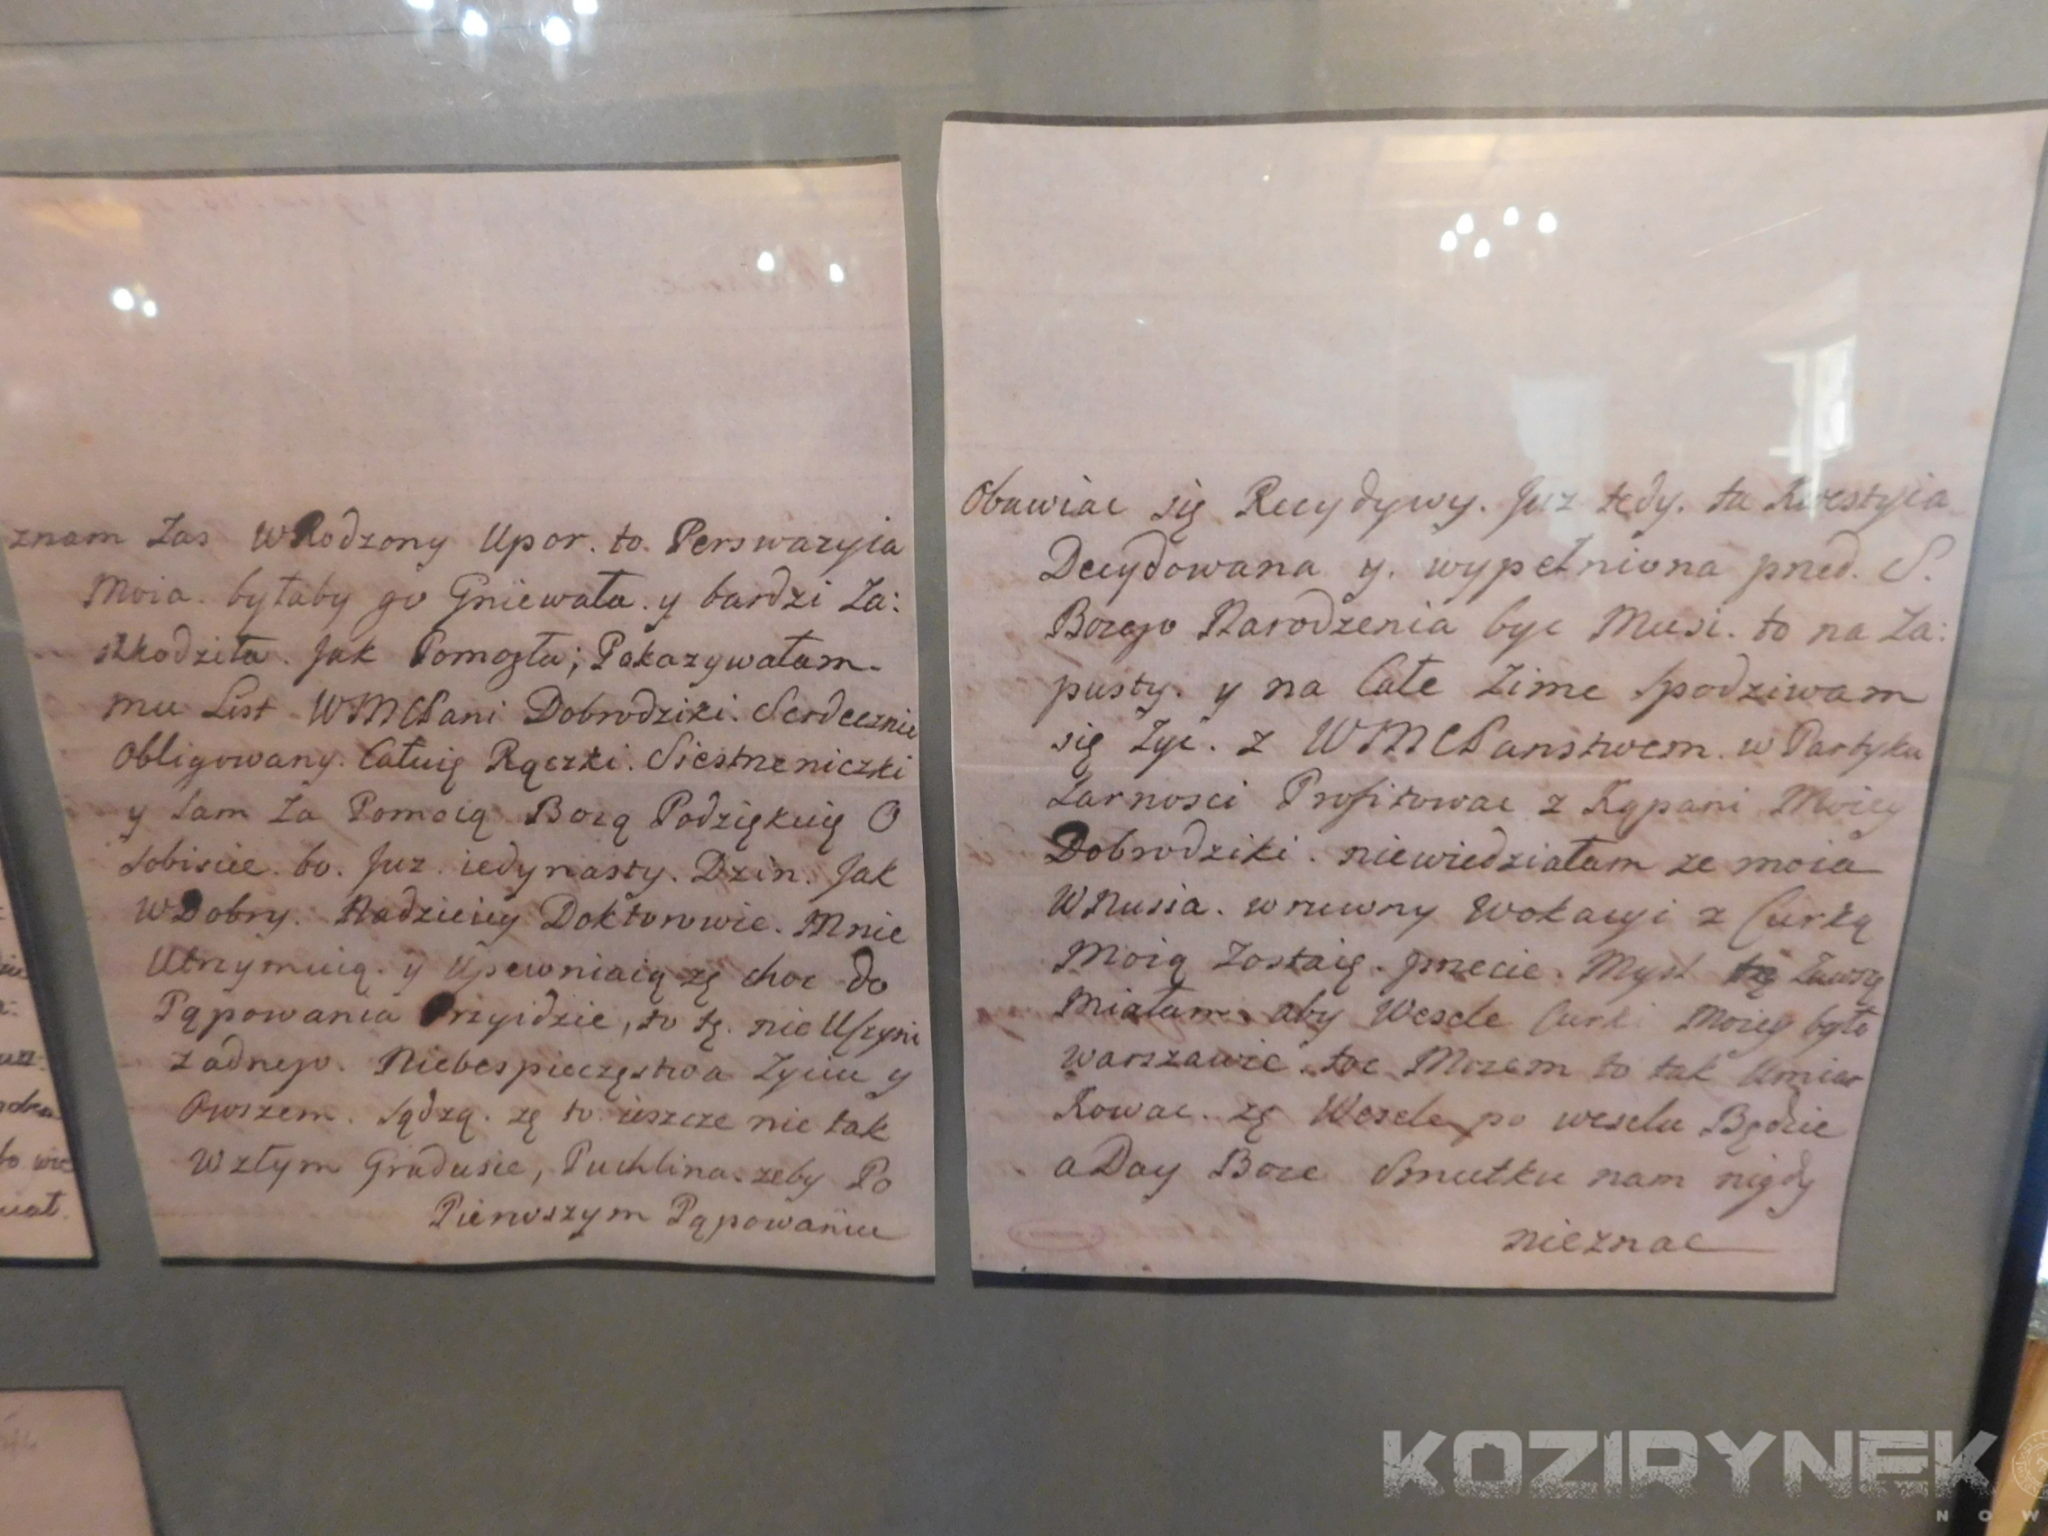 znam Zas WRodzony Upor. to. Perswazyia
Moia. byłaby go Gniewała. y bardzi Za:
szkodziła. Jak Pomogła; Pokazywałam
mu List WMCPani Dobrodziki. Serdecznie
Obligowany. Całuię Rączki. Siestrzeniczki
y Sam Za Pomocą Bozą Podziękuię O
sobiscie. bo. Juz. iedynasty. Dzin. Jak
WDobry. Nadzieiey Doktorowie. Mnie
Utrzymuią. y Upewniaią zę choc do
Pąpowania Przyidzie, to tę. nie Uczyni
zadnego. Niebespieczęstwa Zyciu y
Owszem. sądzą. zę to ieszcze nie tak
Wzłym Gradusie, Puchlina. zeby Po
Pierwszym Pąpowaniu
Obawiac się Recydywy. Juz tedy. ta Kwestyia
Decydowana y. wypełniona przed. S.
Bozego Narodzenia byc Musi. to na Za:
pusty. y na Całe Zime spodziwam
się Zyc. z WMCPanstwem. w Partyku
Larnosci Profitowac z Kąpani Moiey
Dobrodziki. niewiedziałam ze moia
WNusia. wruwny Wokacyi z Curką
Moią Zostaię. przecie. Mysl tę Zawszę
Miałam. aby Wesele Curki Moiey było
Warszawie. toc Mozem to tak Umiar
Kowac. zę Wesele po weselu Będzie
aDay Boze Smutku nam nigdy
nieznac
KOZIRYNEK
NOW